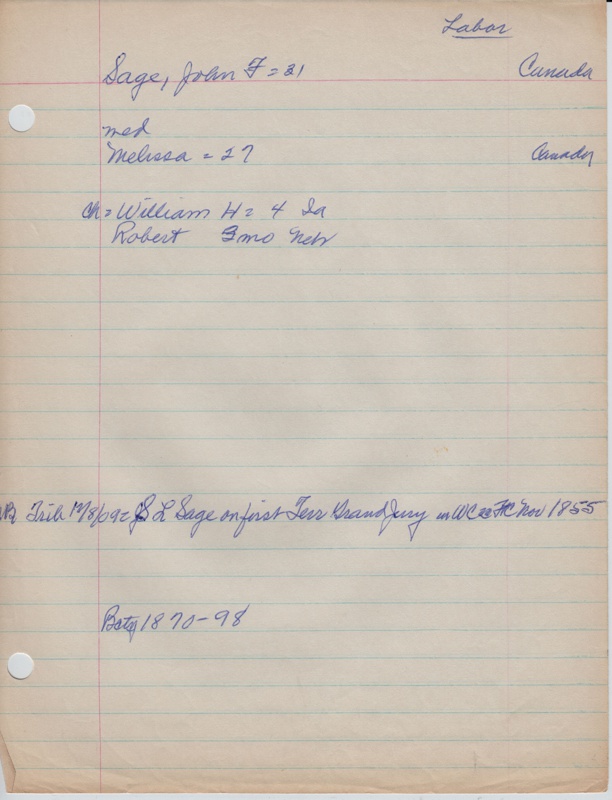 Labor
Sage, John F = 31 Canada
med
Melissa = 27 Canada
ch = William H = 4 Ia
Robert 3mo Nebr
Trib 12/8/09 = S L Sage on first Terr Grand Jury in WC at FC Nov 1855
1870-98